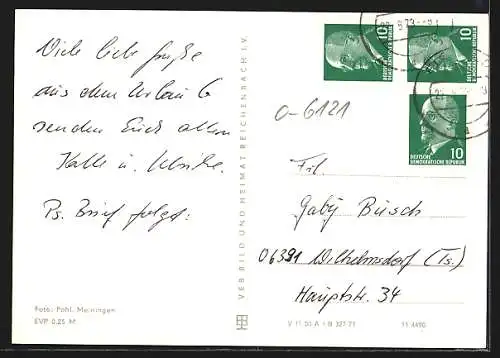 Viele liebe Grüße
aus dem Urlaub
senden Euch allen
Kalle u. Ulrike.
Ps. Brief folgt!
Foto: Pohl, Meiningen
EVP 0,25 M
VEB BILD UND HEIMAT REICHENBACH I. V.
V 11 50 A 1 B 327/71
11 4490
10
DEUTSCHE
DEMOKRATISCHE REPUBLIK
10
DEUTSCHE
DEMOKRATISCHE REPUBLIK
10
DEUTSCHE
DEMOKRATISCHE REPUBLIK
O-6121
Frl.
Gaby Busch
06391 Wilhelmsdorf (Ts.)
Hauptstr. 34